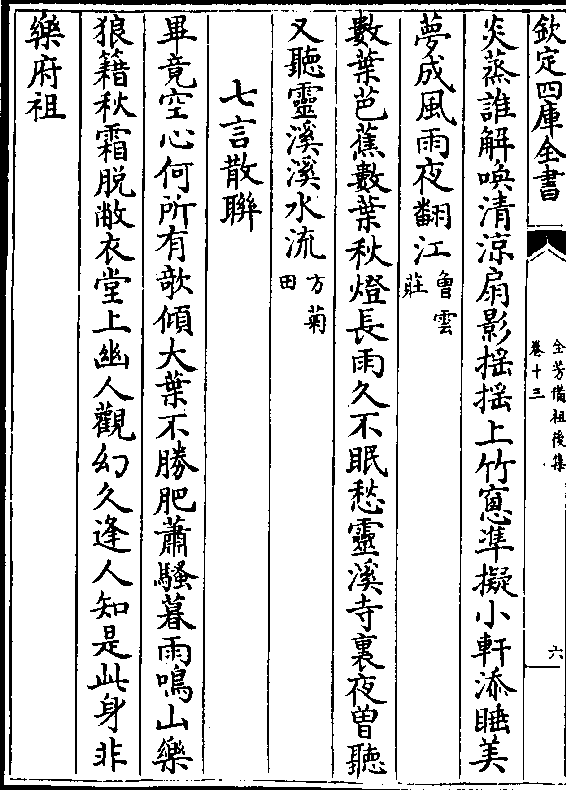 欽定四庫全書
全芳備祖後集
卷十三
六
炎蒸誰解喚清涼扇影揺揺上竹窻凖擬小軒添睡美
夢成風雨夜翻江魯雲莊
數葉芭蕉數葉秋燈長雨久不眠愁靈溪寺裏夜曽聽
又聽靈溪溪水流方菊田
七言散聯
畢竟空心何所有欹傾大葉不勝肥蕭騷暮雨鳴山樂
狼籍秋霜脱敝衣堂上幽人觀幻久逢人知是此身非
樂府祖